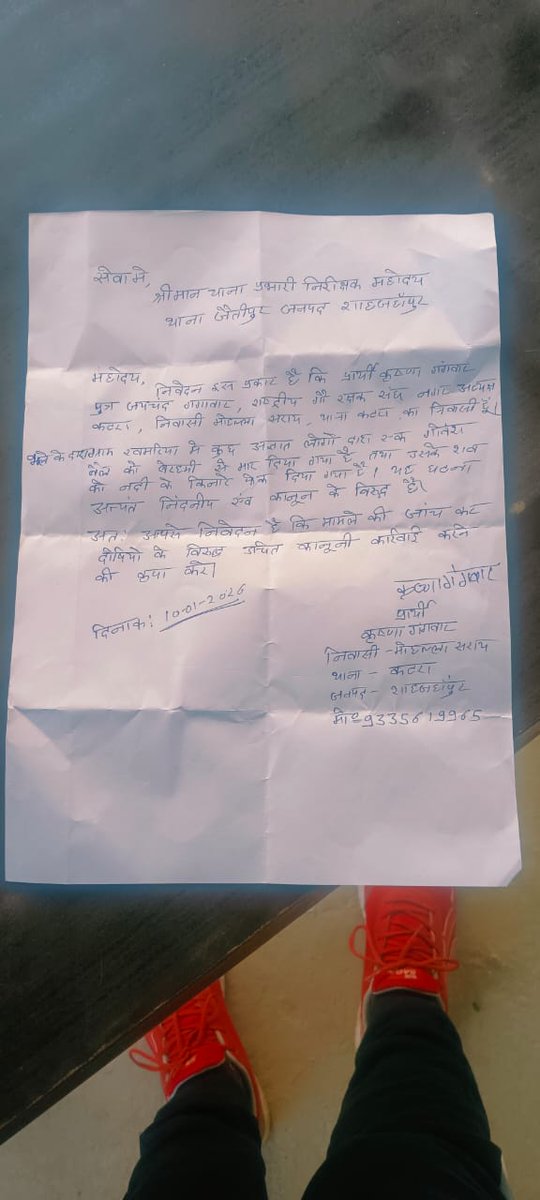 सेवा मे,
श्रीमान थाना प्रभारी निरीक्षक महोदय
थाना जैतीपुर जनपद शाहजहाँपुर
महोदय,
निवेदन इस प्रकार है कि प्रार्थी कृष्णा गंगवार
पुत्र जयचंद गंगवार, राष्ट्रीय गौ रक्षक संघ नगर अध्यक्ष
कटरा, निवासी मोहल्ला सराय, थाना कटरा का निवासी है।
खमरिया मे कुछ अज्ञात लोगों द्वारा एक गोवंश
बैल को बेरहमी से मार दिया गया है तथा उसके शव
को नदी के किनारे फेंक दिया गया है। यह घटना
अत्यंत निंदनीय एंव कानून के विरुद्ध है।
अतः आपसे निवेदन है कि मामले की जांच कर
दोषियो के विरुद्ध उचित कानूनी कार्रवाई करने
की कृपा करे।
दिनांक: 10-01-2026
कृष्णा गंगवार
प्रार्थी
कृष्णा गंगवार
निवासी - मोहल्ला सराय
थाना - कटरा
जनपद - शाहजहाँपुर
मो० 9335619965